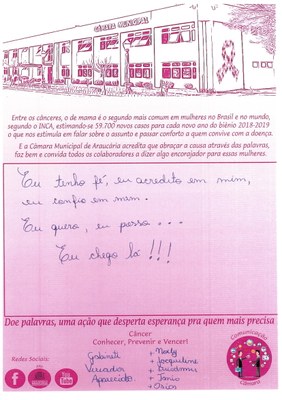 CÂMARA MUNICIPAL
Entre os cânceres, o de mama é o segundo mais comum em mulheres no Brasil e no mundo,
segundo o INCA, estimando-se 59.700 novos casos para cada novo ano do biênio 2018-2019
o que nos estimula em falar sobre o assunto e passar conforto a quem convive com a doença.
E a Câmara Municipal de Araucária acredita que abraçar a causa através das palavras,
faz bem e convida todos os colaboradores a dizer algo encorajador para essas mulheres.
Eu tenho fé, eu acredito em mim,
eu confio em mim.
Eu quero, eu posso...
Eu chego lá!!!
Doe palavras, uma ação que desperta esperança pra quem mais precisa
Câncer
Conhecer, Prevenir e Vencer!
Redes Sociais:
You Tube
Gabinete
Vereador
Aparecido
+ Jacqueline
Comunicação
Câmara